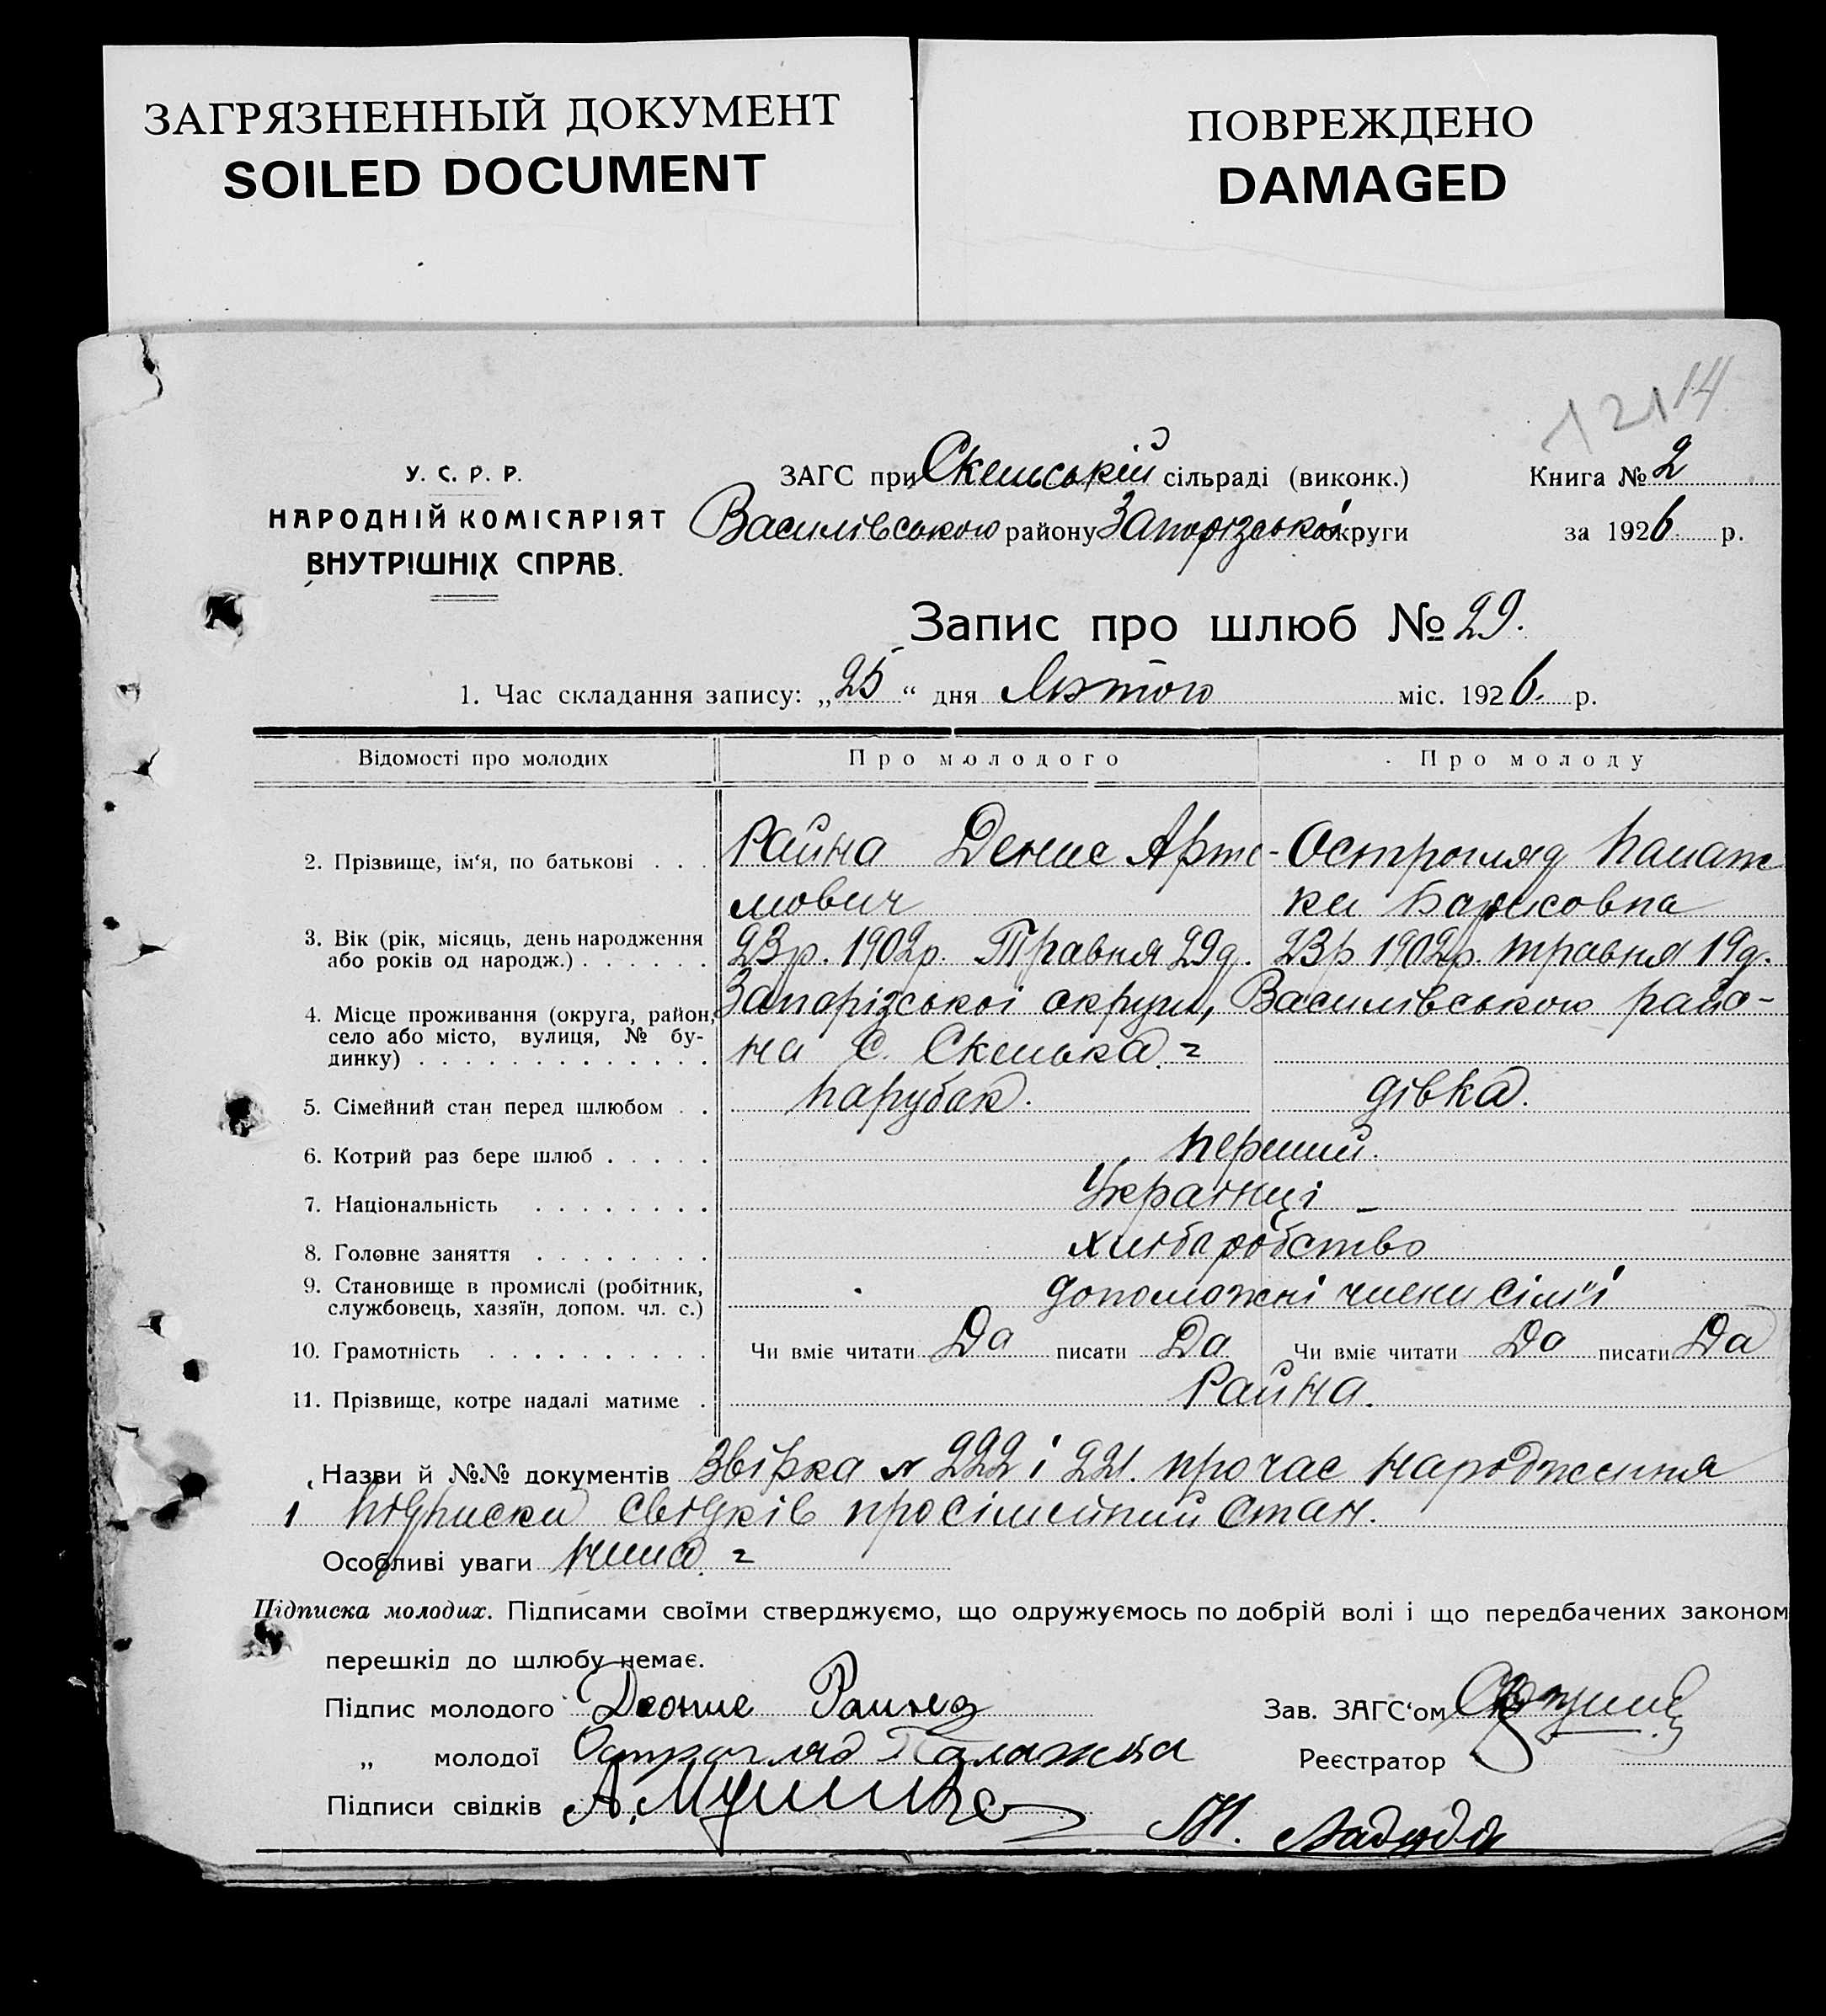 ЗАГРЯЗНЕННЫЙ ДОКУМЕНТ
SOILED DOCUMENT
ПОВРЕЖДЕНО
DAMAGED
121 14
У. С. Р. Р.
НАРОДНІЙ КОМІСАРІЯТ
ВНУТРІШНІХ СПРАВ.
ЗАГС при Скельській сільраді (виконк.)
Василівського району Запорізької округи
Книга № 2
за 1926 р.
Запис про шлюб № 29.
1. Час складання запису: „25“ дня Лютого міс. 1926. р.
Відомості про молодих Про молодого Про молоду
2. Прізвище, ім'я, по батькові . . . Райна Денис Арте- Острогляд Палаж
мович ки Барисовна
3. Вік (рік, місяць, день народження 23р. 1902р. Травня 29д. 23р 1902р. травня 19д.
або років од народж.) . . . . . .
4. Місце проживання (округа, район, Запорізської округи, Василівського райо-
село або місто, вулиця, № бу- на С. Скелька
динку) . . . . . . . . . . . . .
5. Сімейний стан перед шлюбом . . парубак. дівка.
6. Котрий раз бере шлюб . . . . . перший.
7. Національність . . . . . . . . Украінці
8. Головне заняття . . . . . . . . хліборобство
9. Становище в промислі (робітник, допоможні члени сім'ї
службовець, хазяїн, допом. чл. с.)
10. Грамотність . . . . . . . . . . Чи вміє читати Да писати Да Чи вміє читати Да писати Да
11. Прізвище, котре надалі матиме . Райна.
Назви й №№ документів Звірка № 222 і 221. про час народження
і підписка свідків про сімейний стан.
Особливі уваги нима
Підписка молодих. Підписами своїми стверджуємо, що одружуємось по добрій волі і що передбачених законом
перешкід до шлюбу немає.
Підпис молодого Деонис Раина
Зав. ЗАГС'ом
„ молодої Остроглад Палажка
Реєстратор
Підписи свідків А.